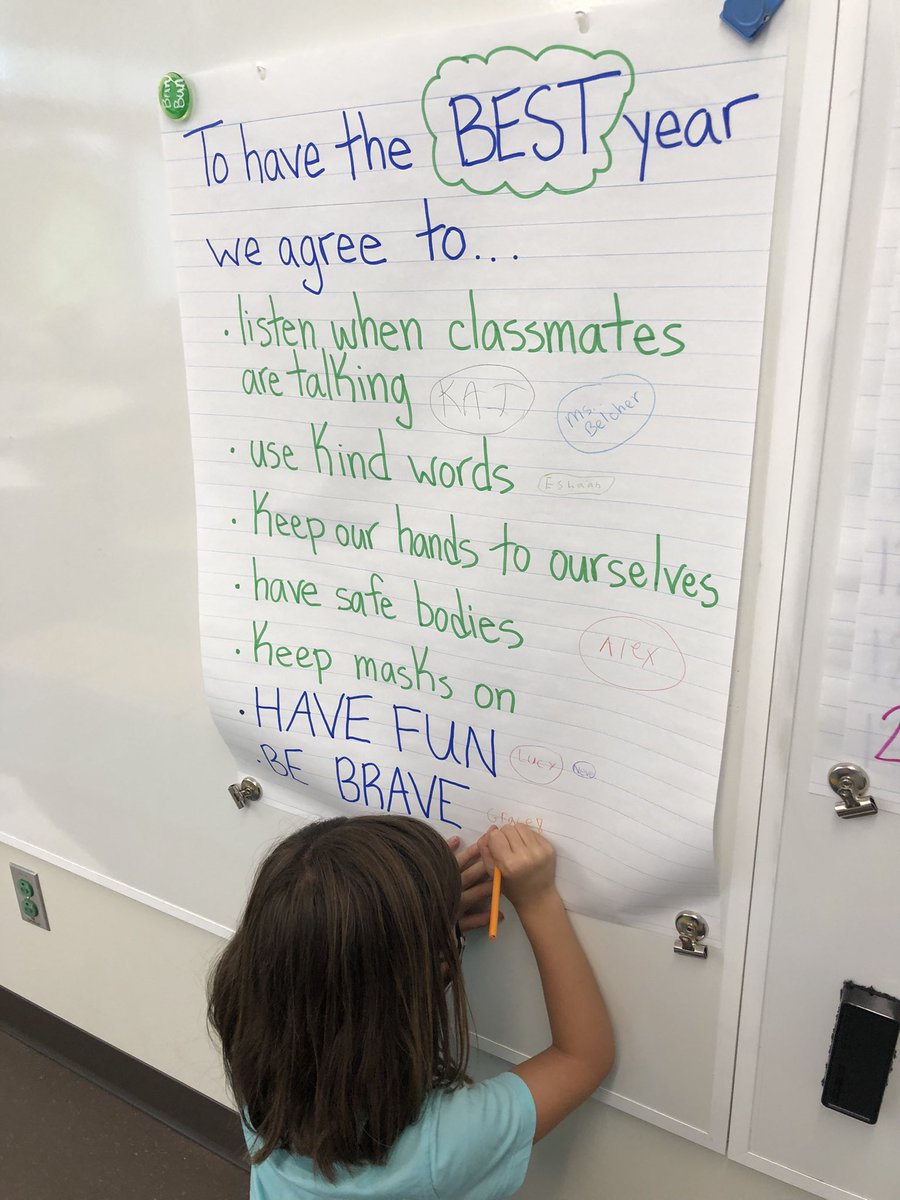 To have the BEST year
we agree to...
• listen when classmates
are talking
KAJ
Ms.
Belcher
• use kind words
Eshaan
• Keep our hands to ourselves
• have safe bodies
Alex
• Keep masks on
• HAVE FUN
Lucy
• BE BRAVE
Gracey